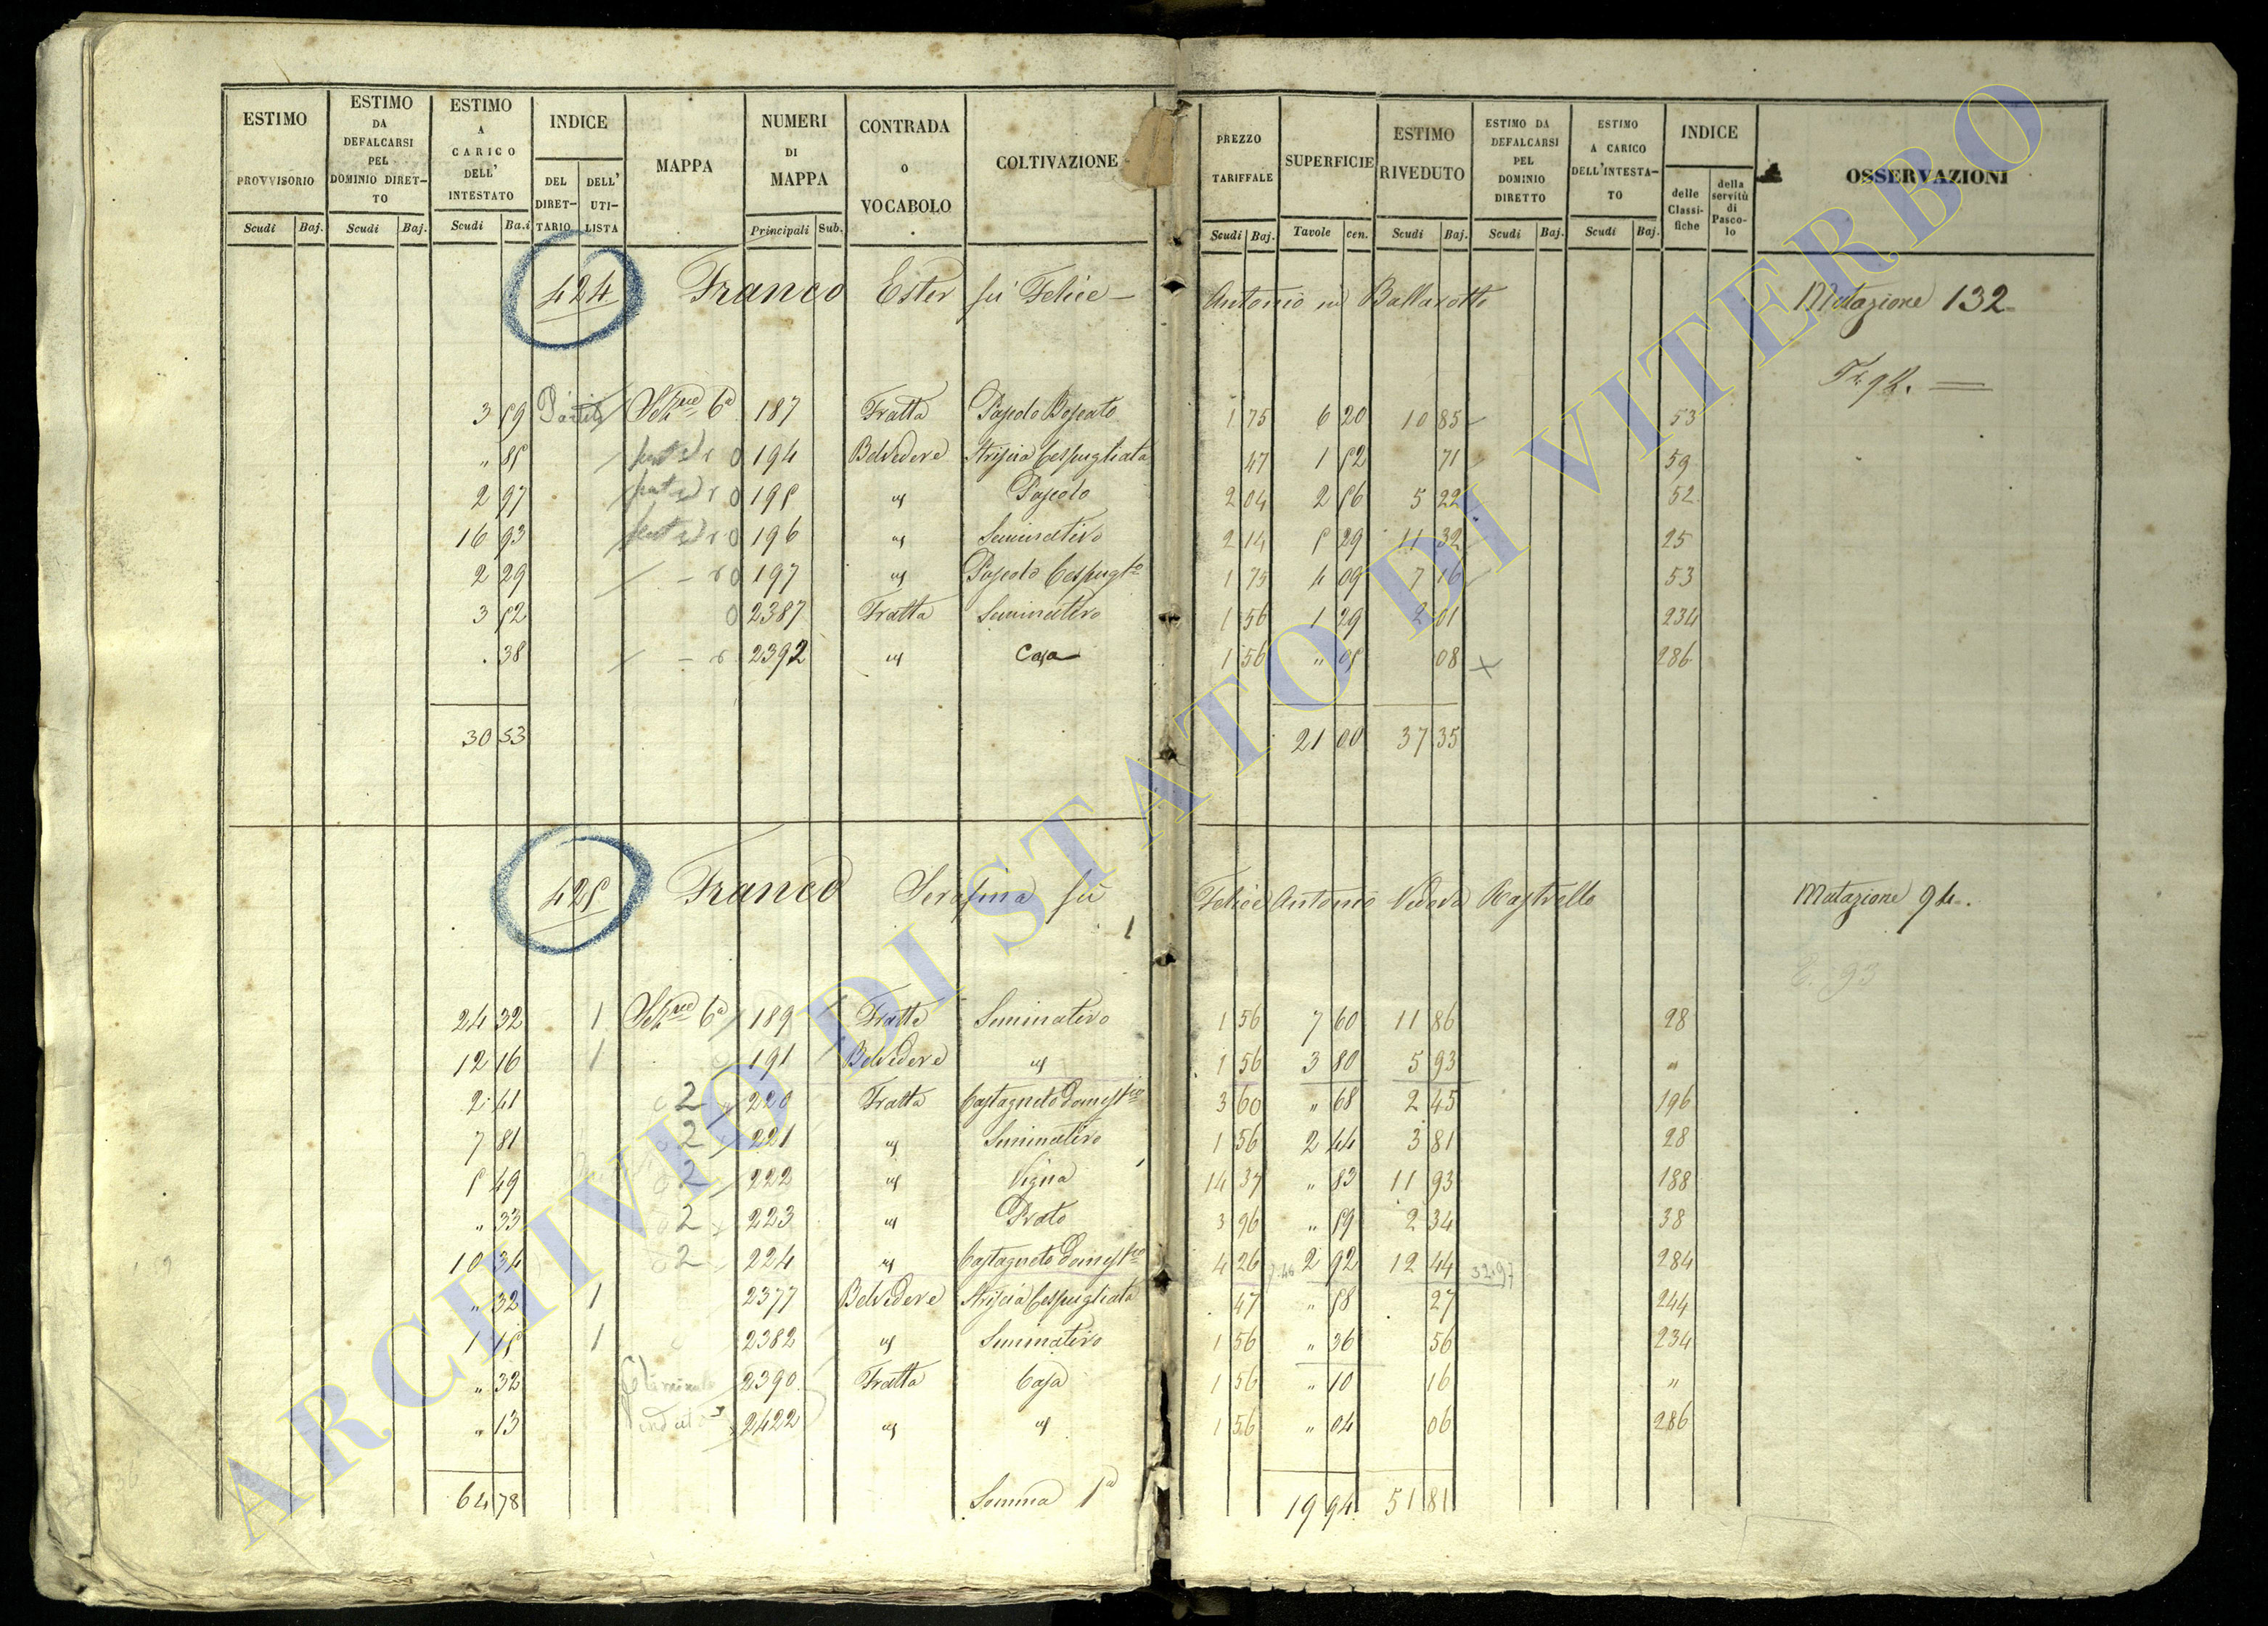 ESTIMO PROVVISORIO Scudi Baj.
ESTIMO DA DEFALCARSI PEL DOMINIO DIRET-TO Scudi Baj.
ESTIMO A CARICO DELL' INTESTATO Scudi Ba.i
INDICE DEL DIRET-TARIO DELL' UTI-LISTA
MAPPA
NUMERI DI MAPPA Principali Sub.
CONTRADA o VOCABOLO
COLTIVAZIONE
PREZZO TARIFFALE Scudi Baj.
SUPERFICIE Tavole cen.
ESTIMO RIVEDUTO Scudi Baj.
ESTIMO DA DEFALCARSI PEL DOMINIO DIRETTO Scudi Baj.
ESTIMO A CARICO DELL'INTESTA-TO Scudi Baj.
INDICE delle Classi-fiche della servitù di Pasco-lo
OSSERVAZIONI
424 Franco Ester fu Felice – Antonio in Ballarotti Mutazione 132
3 59 Sez.ne 6a 187 Fratta Pascolo Boscato 1 75 6 20 10 85 53
" 85 194 Belvedere Striscia Cespugliata 47 1 52 71 59
2 97 195 " Pascolo 2 04 2 56 5 22 52
16 93 196 " Seminativo 2 14 5 29 11 32 25
2 29 197 " Pascolo Cespugto 1 75 4 09 7 16 53
3 52 2387 Fratta Seminativo 1 56 1 29 2 01 234
. 38 2392 " Casa 1 56 " 05 08 286
30 53 21 00 37 35
425 Franco Serafina fu Felice Antonio Vedova Rastrello Mutazione 94.
24 32 1 Sez.ne 6a 189 Fratta Seminativo 1 56 7 60 11 86 28
12 16 1 191 Belvedere " 1 56 3 80 5 93 "
2 41 2 220 Fratta Castagneto Domestico 3 60 " 68 2 45 196
7 81 2 221 " Seminativo 1 56 2 44 3 81 28
5 49 2 222 " Vigna 14 37 " 83 11 93 188
" 33 2 223 " Prato 3 96 " 59 2 34 38
10 34 2 224 " Castagneto Domestco 4 26 2 92 12 44 32.97 284
" 32 1 2377 Belvedere Striscia Cespugliata 47 " 58 27 244
1 15 1 2382 " Seminativo 1 56 " 36 56 234
" 32 2390 Fratta Casa 1 56 " 10 16 "
" 13 2422 " " 1 56 " 04 06 286
64 78 Somma 1a 19 94 51 81
ARCHIVIO DI STATO DI VITERBO